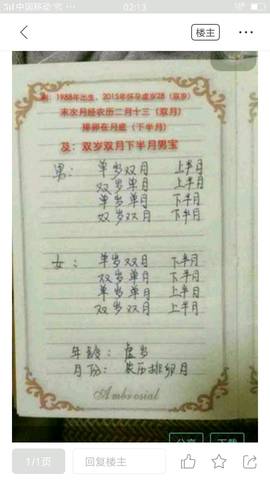 中国移动 02:13
楼主
例：1988年出生，2015年怀孕虚岁28（双岁）
末次月经农历二月十三（双月）
排卵在月底（下半月）
及：双岁双月下半月男宝
男： 单岁双月 上半月
双岁单月 上半月
单岁单月 下半月
双岁双月 下半月
女： 单岁双月 下半月
双岁单月 下半月
单岁单月 上半月
双岁双月 上半月
年龄： 虚岁
月份： 农历排卵月
Ambrosial
分享 下载
1/1页 回复楼主